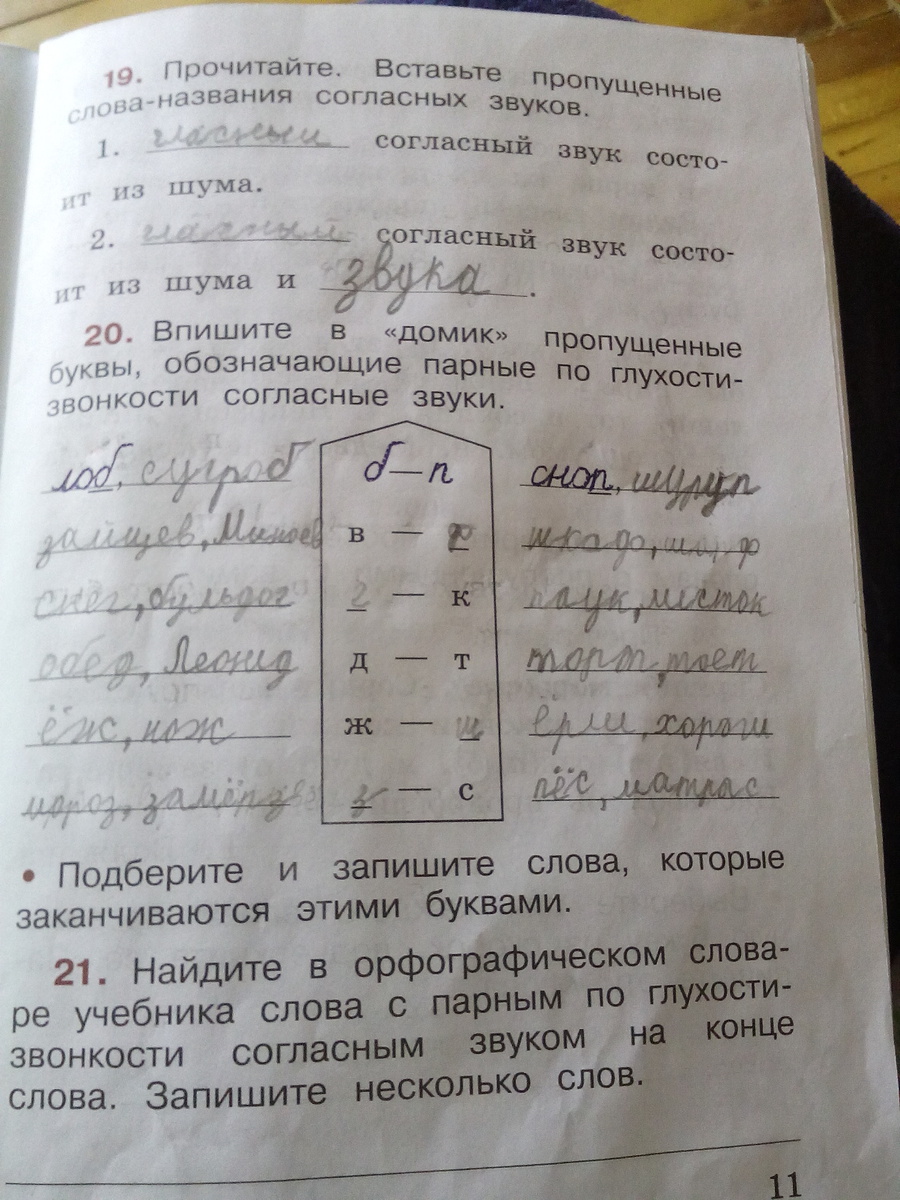 19. Прочитайте. Вставьте пропущенные
слова-названия согласных звуков.
1. гласный согласный звук состо-
ит из шума.
2. гласный согласный звук состо-
ит из шума и звука.
20. Впишите в «домик» пропущенные
буквы, обозначающие парные по глухости-
звонкости согласные звуки.
лоб, сугроб б — п сноп, шуруп
в — шкаф, шарф
снег, бульдог г — к паук, листок
обед, Леонид д — т торт,
ёж, нож ж — ш ёрш, хорош
мороз, замёрз з — с пёс, матрас
• Подберите и запишите слова, которые
заканчиваются этими буквами.
21. Найдите в орфографическом слова-
ре учебника слова с парным по глухости-
звонкости согласным звуком на конце
слова. Запишите несколько слов.
11